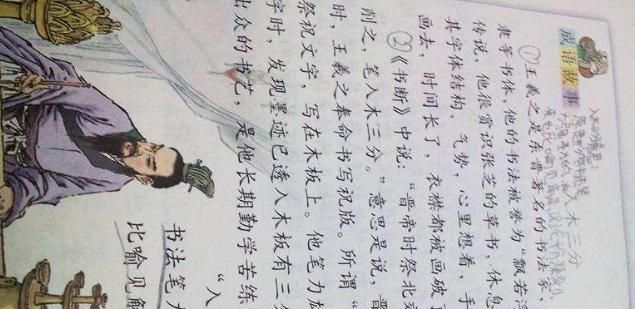 成语故事
入木三分
①王羲之是东晋著名的书法家，
隶等书体,他的书法被誉为“飘若浮
传说，他很赏识张芝的草书，休息
其字体结构、气势，心里想着，手
画去，时间长了，衣襟都被画破了
②《书断》中说：“晋帝时祭北郊
削之，笔入木三分。”意思是说，晋
时，王羲之奉命书写祝版。所谓“
祭祝文字，写在木板上。他笔力雄
字时，发现墨迹已透入木板有三分
出众的书艺，是他长期勤学苦练
“入
书法笔力
比喻见解